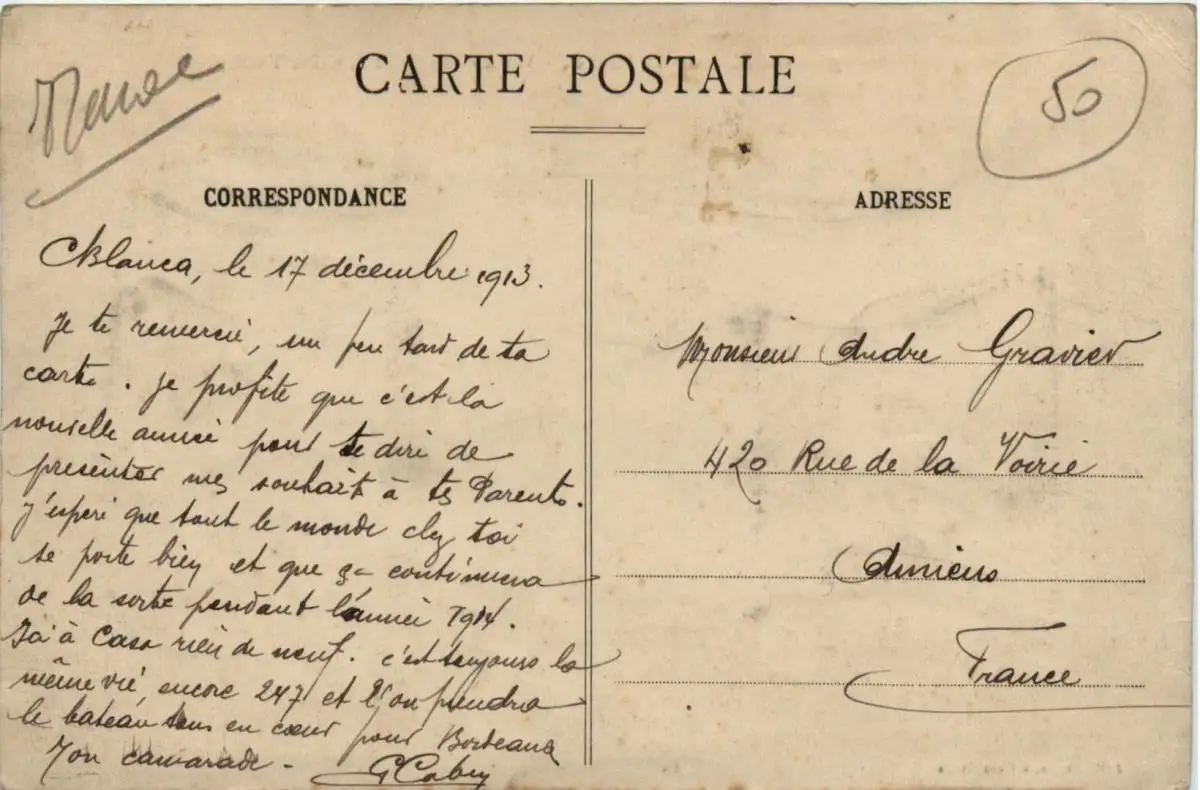 Maroc
CARTE POSTALE
50
CORRESPONDANCE
CBlanca, le 17 décembre 1913.
Je te remercie, un peu tard de ta
carte. Je profite que c'est la
nouvelle année pour te dire de
présenter mes souhaits à tes Parents.
J'espère que tout le monde chez toi
se porte bien et que ça continuera
de la sorte pendant l'année 1914.
Ici à Casa rien de neuf. c'est toujours la
même vie, encore 247 et l'on prendra
le bateau tous en cœur pour Bordeaux
Ton camarade -
ADRESSE
Monsieur André Gravier
420 Rue de la Voirie
Amiens
France